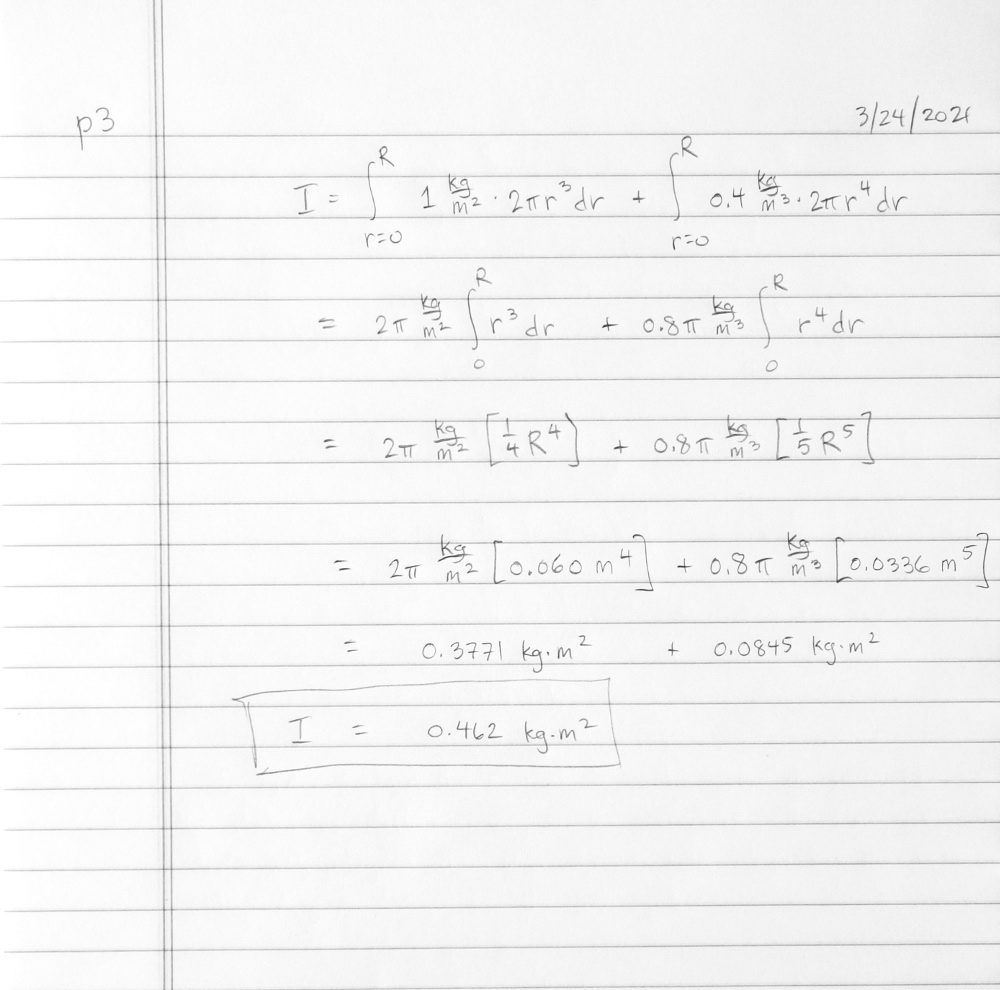 p3 3/24/2021
I = ∫_{r=0}^{R} 1 kg/m² · 2πr³dr + ∫_{r=0}^{R} 0.4 kg/m³ · 2πr⁴dr
= 2π kg/m² ∫_{0}^{R} r³dr + 0.8π kg/m³ ∫_{0}^{R} r⁴dr
= 2π kg/m² [1/4 R⁴] + 0.8π kg/m³ [1/5 R⁵]
= 2π kg/m² [0.060 m⁴] + 0.8π kg/m³ [0.0336 m⁵]
= 0.3771 kg·m² + 0.0845 kg·m²
I = 0.462 kg·m²